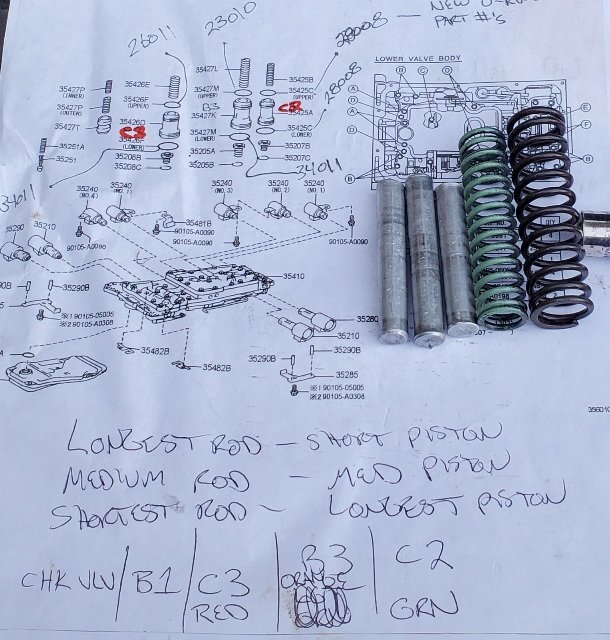 NEW O-RINGS
PART #'S
26011
23010
28008
28008
34011
34011
LOWER VALVE BODY
35427P
(INNER)
35427P
(OUTER)
35427T
35251A
35251
35426E
35426F
(UPPER)
35426D
C3
(LOWER)
35208B
35208C
35427L
35427M
(UPPER)
B3
35427K
35427M
(LOWER)
35205A
35205B
35425B
35425C
(UPPER)
35425A
35425C
(LOWER)
35207B
35207C
35240
(NO.4)
35240
(NO.1)
35240
(NO.3)
35240
(NO.2)
35240
(NO.1)
35481B
90105-A0090
90105-A0090
90105-A0090
35290
35210
35410
35290B
※1 90105-05005
※2 90105-A0308
35280
35210
35290B
35290B
35285
35482B
35482B
※1 90105-05005
※2 90105-A0308
QTY
LONGEST ROD - SHORT PISTON
MEDIUM ROD - MED PISTON
SHORTEST ROD - LONGEST PISTON
CHK VLV B1 C3 B3 C2
RED ORANGE GRN